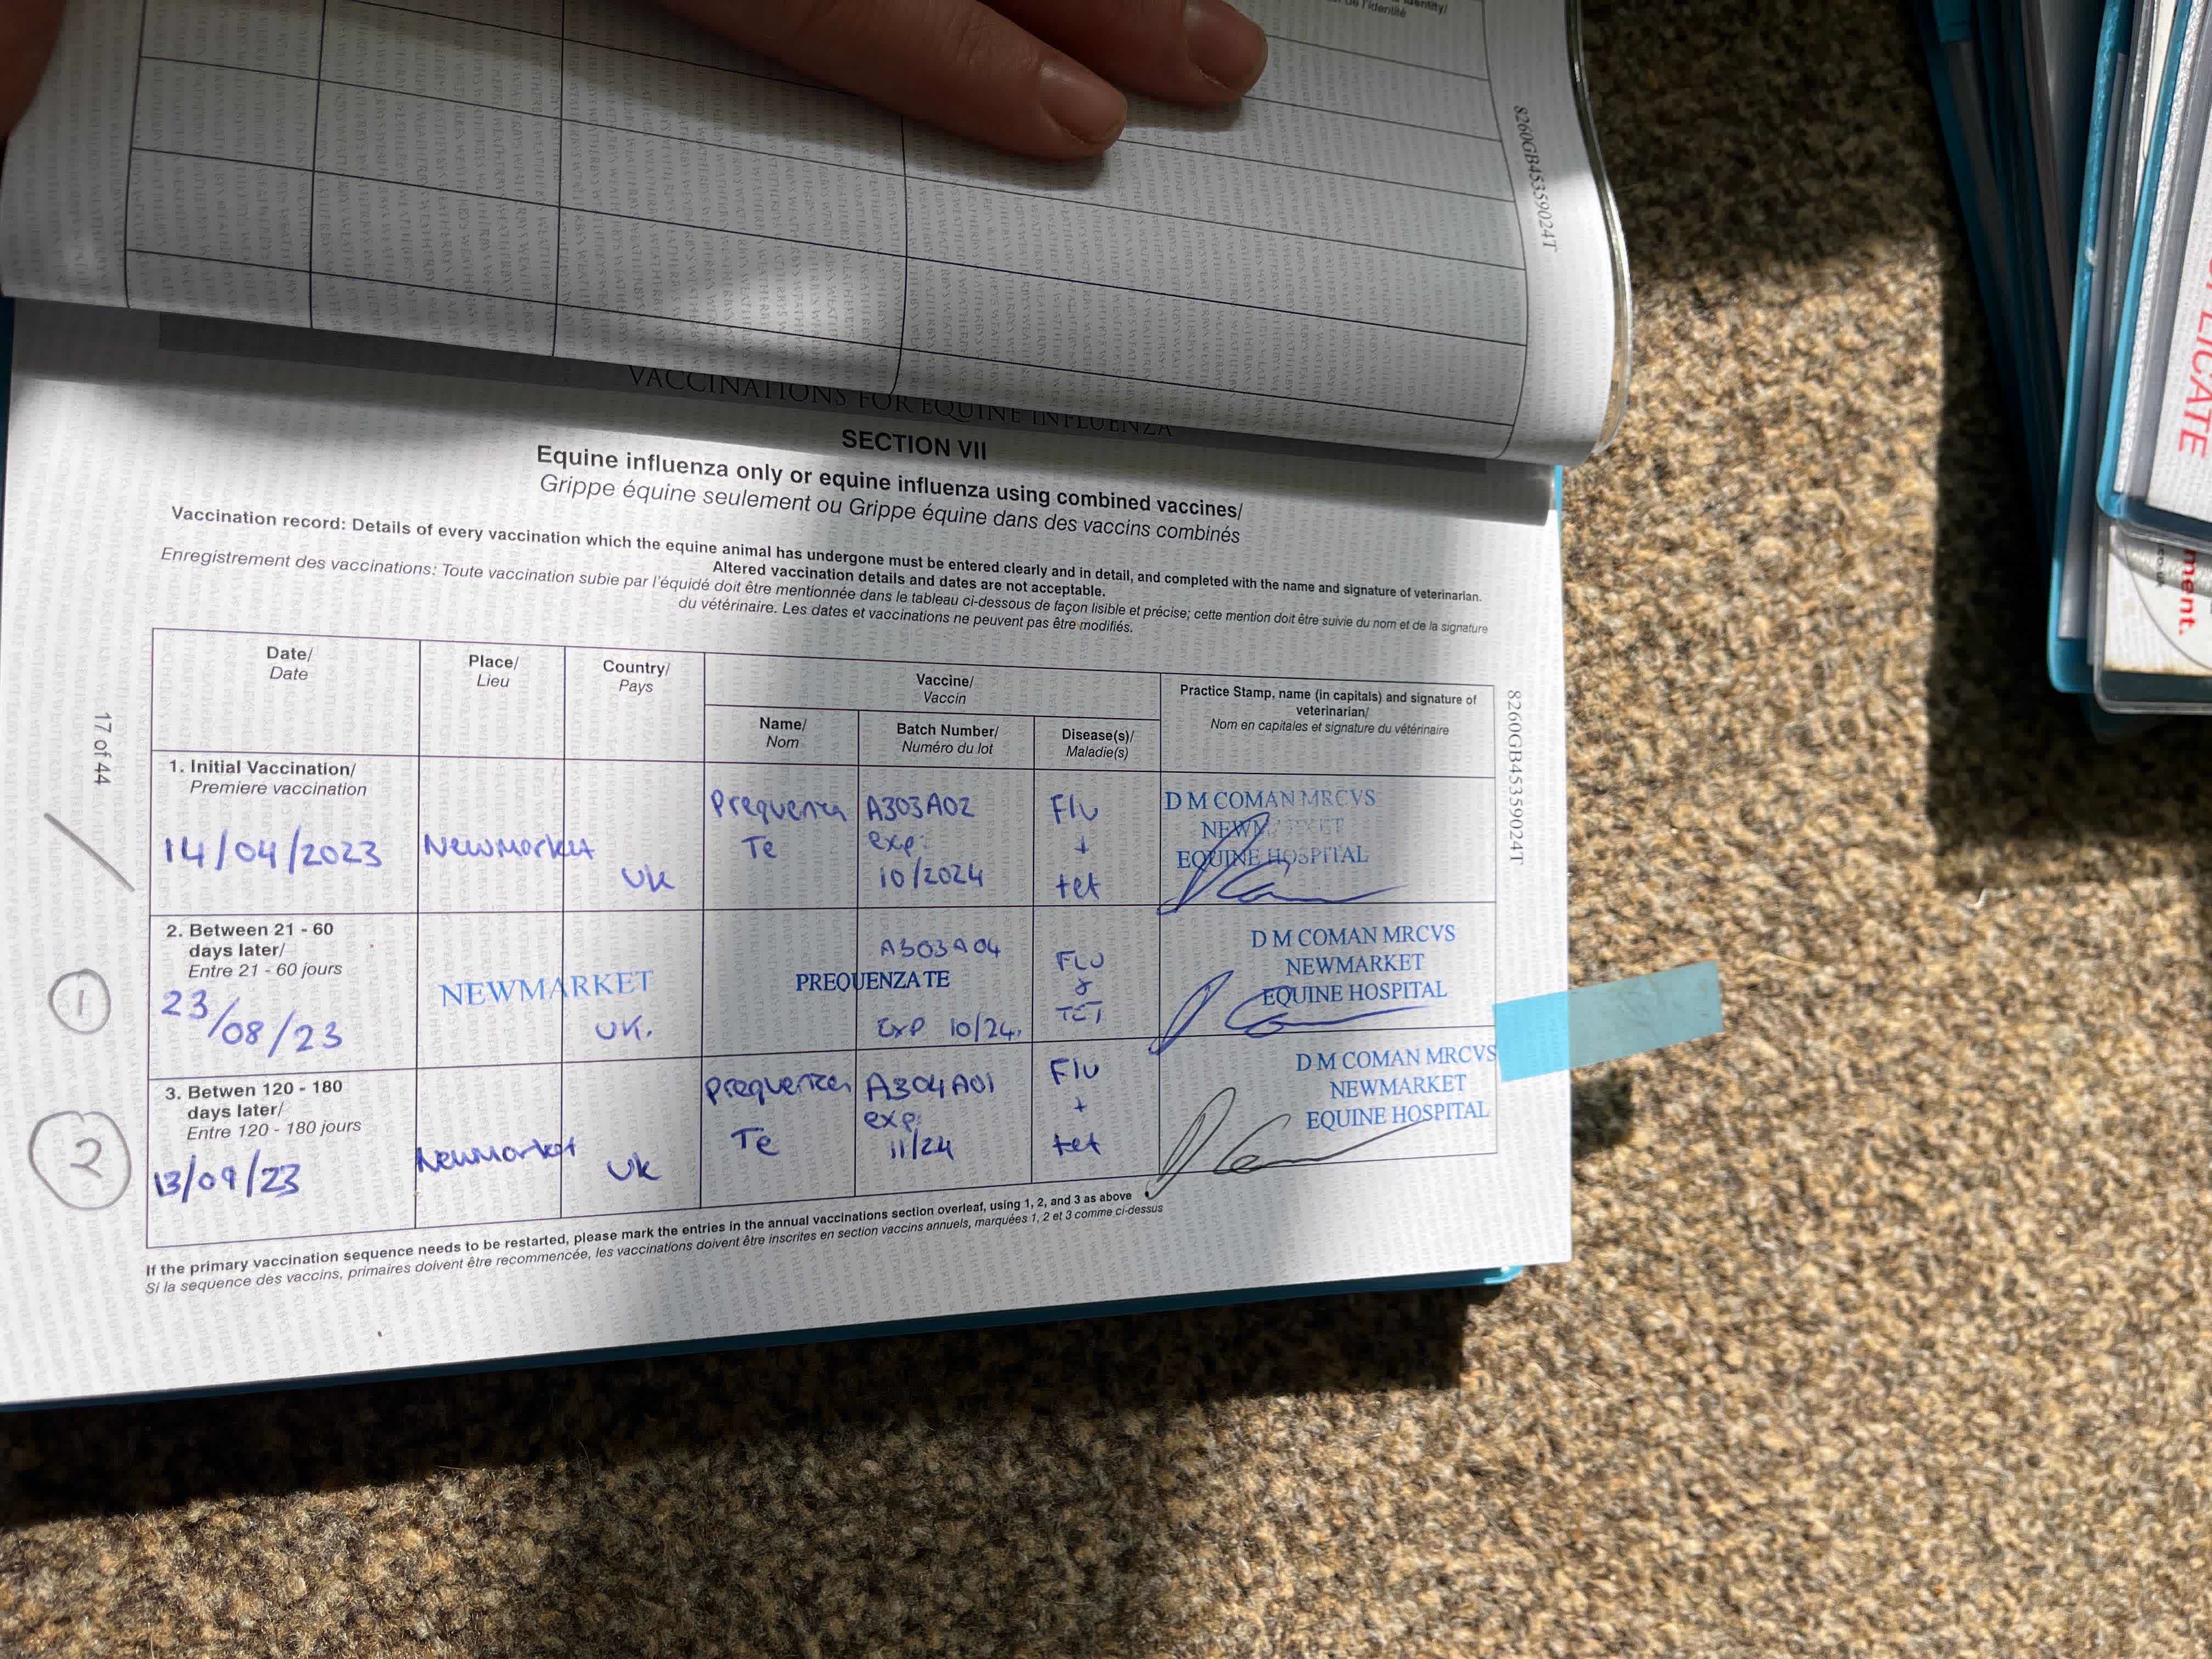 de l'identité
8260GB45359024T
VACCINATIONS FOR EQUINE INFLUENZA
SECTION VII
Equine influenza only or equine influenza using combined vaccines/
Grippe équine seulement ou Grippe équine dans des vaccins combinés
Vaccination record: Details of every vaccination which the equine animal has undergone must be entered clearly and in detail, and completed with the name and signature of veterinarian.
Altered vaccination details and dates are not acceptable.
Enregistrement des vaccinations: Toute vaccination subie par l'équidé doit être mentionnée dans le tableau ci-dessous de façon lisible et précise; cette mention doit être suivie du nom et de la signature
du vétérinaire. Les dates et vaccinations ne peuvent pas être modifiés.
Date/
Date
Place/
Lieu
Country/
Pays
Vaccine/
Vaccin
Name/
Nom
Batch Number/
Numéro du lot
Disease(s)/
Maladie(s)
Practice Stamp, name (in capitals) and signature of
veterinarian/
Nom en capitales et signature du vétérinaire
1. Initial Vaccination/
Premiere vaccination
14/04/2023
Newmarket
UK
Prequenza
Te
A303A02
exp:
10/2024
Flu
+
tet
D M COMAN MRCVS
NEWMARKET
EQUINE HOSPITAL
1
2. Between 21 - 60
days later/
Entre 21 - 60 jours
23/08/23
NEWMARKET
UK.
PREQUENZA TE
A303A04
EXP 10/24.
FLU
&
TET
D M COMAN MRCVS
NEWMARKET
EQUINE HOSPITAL
2
3. Betwen 120 - 180
days later/
Entre 120 - 180 jours
13/09/23
Newmarket
UK
Prequenza
Te
A304A01
exp:
11/24
Flu
+
tet
D M COMAN MRCVS
NEWMARKET
EQUINE HOSPITAL
If the primary vaccination sequence needs to be restarted, please mark the entries in the annual vaccinations section overleaf, using 1, 2, and 3 as above
Si la sequence des vaccins, primaires doivent être recommencée, les vaccinations doivent être inscrites en section vaccins annuels, marquées 1, 2 et 3 comme ci-dessus
17 of 44
8260GB45359024T
LICATE
ment.